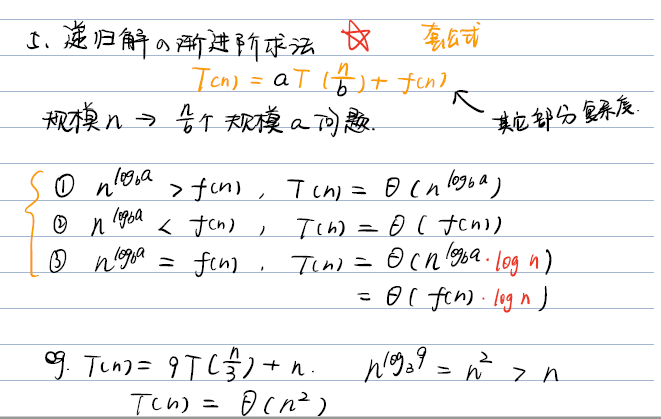 5、递归解的渐进阶求法 ☆ 套公式
T(n) = aT(n/b) + f(n)
规模n → n/b个规模a问题. 其它部分复杂度.
① n^{log_b a} > f(n), T(n) = θ(n^{log_b a})
② n^{log_b a} < f(n), T(n) = θ(f(n))
③ n^{log_b a} = f(n), T(n) = θ(n^{log_b a}·log n)
= θ(f(n)·log n)
eg. T(n) = 9T(n/3) + n. n^{log_3 9} = n^2 > n
T(n) = θ(n^2)